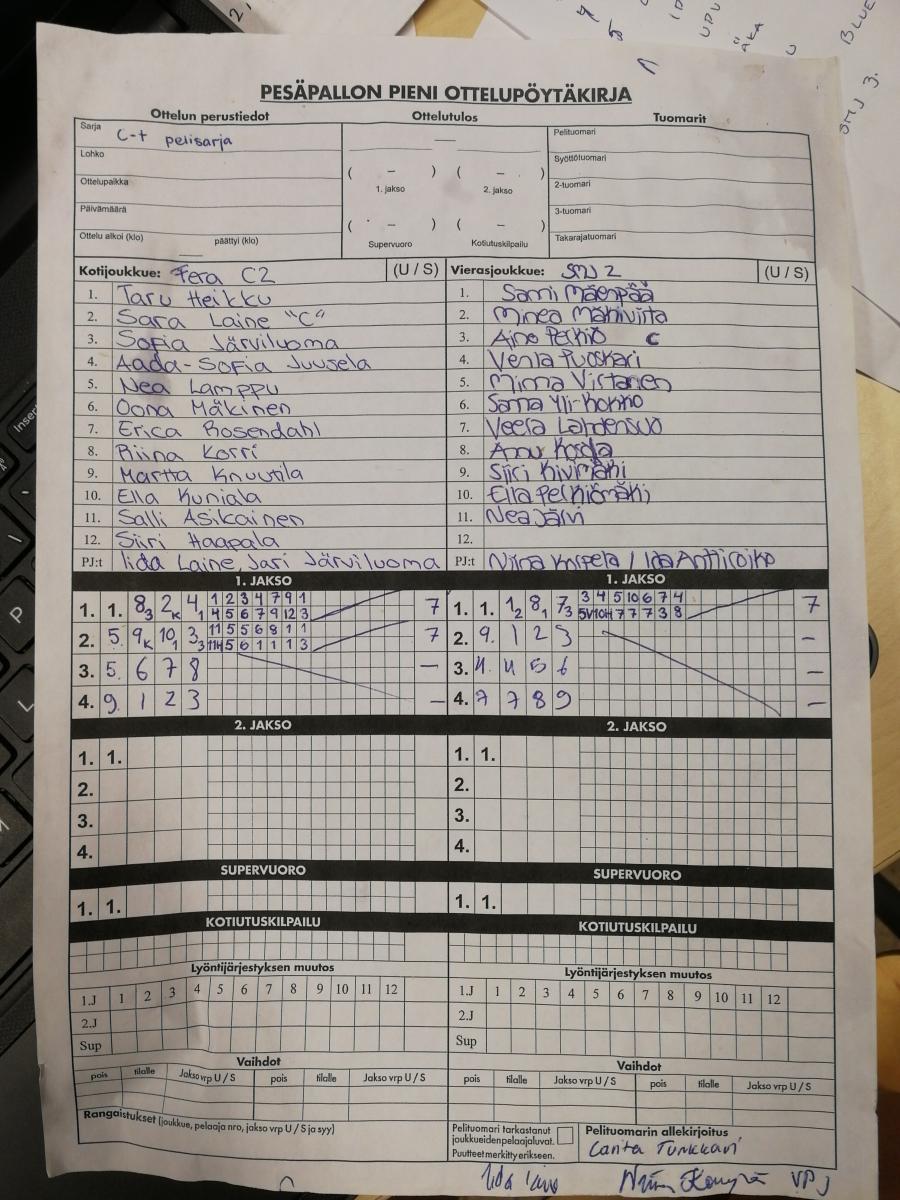 PESÄPALLON PIENI OTTELUPÖYTÄKIRJA
Ottelun perustiedot
Ottelutulos
Tuomarit
Sarja C-t pelisarja
Lohko
Ottelupaikka
Päivämäärä
Ottelu alkoi (klo) päättyi (klo)
—
( – ) ( – )
1. jakso 2. jakso
( – ) ( – )
Supervuoro Kotiutuskilpailu
Pelituomari
Syöttötuomari
2-tuomari
3-tuomari
Takarajatuomari
Kotijoukkue: Fera C2 (U / S)
1. Taru Heikku
2. Sara Laine "C"
3. Sofia Järviluoma
4. Aada-Sofia Juusela
5. Nea Lamppu
6. Oona Mäkinen
7. Erica Rosendahl
8. Riina Korri
9. Martta Knuutila
10. Ella Kuniala
11. Salli Asikainen
12. Siiri Haapala
PJ:t Iida Laine, Jari Järviluoma
Vierasjoukkue: SMJ 2 (U / S)
1. Sami Mäenpää
2. Minea Mahivirta
3. Aino Pelkiö C
4. Venla Puskari
5. Minna Virtanen
6. Sanna Yli-Honko
7. Veera Lahdensuo
8. Anu Koski
9. Siiri Kivimäki
10. Ella Pelkiömäki
11. Nea Järvi
12.
PJ:t Niina Korpela / Ida Anttiroiko
1. JAKSO
1. 1. 8 3 2 K 4 1 1 2 3 4 7 9 1 7
4 5 6 7 9 12 3
2. 5. 9 K 10 1 3 3 11 5 5 6 8 1 1 7
11H 5 6 1 1 1 3
3. 5. 6 7 8 —
4. 9. 1 2 3 —
1. JAKSO
1. 1. 1 2 8 1 7 3 3 4 5 10 6 7 4 7
5V 10H 7 7 7 3 8
2. 9. 1 2 3 –
3. 4. 4 5 6 –
4. 7 7 8 9 –
2. JAKSO
1. 1.
2.
3.
4.
2. JAKSO
1. 1.
2.
3.
4.
SUPERVUORO
1. 1.
SUPERVUORO
1. 1.
KOTIUTUSKILPAILU
KOTIUTUSKILPAILU
Lyöntijärjestyksen muutos
1.J 1 2 3 4 5 6 7 8 9 10 11 12
2.J
Sup
Lyöntijärjestyksen muutos
1.J 1 2 3 4 5 6 7 8 9 10 11 12
2.J
Sup
Vaihdot
pois tilalle Jakso vrp U / S pois tilalle Jakso vrp U / S
Vaihdot
pois tilalle Jakso vrp U / S pois tilalle Jakso vrp U / S
Rangaistukset (joukkue, pelaaja nro, jakso vrp U / S ja syy)
Pelituomari tarkastanut
joukkueiden pelaajaluvat.
Puutteet merkitty erikseen.
Pelituomarin allekirjoitus
Carita Turkkari
Iida Laine
VPJ
SMJ 3.
BLUE